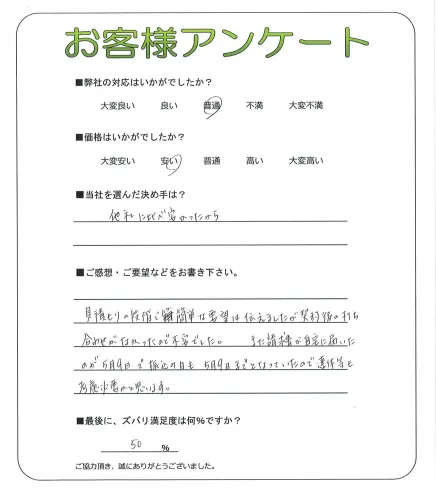 お客様アンケート
■弊社の対応はいかがでしたか？
大変良い　良い　普通　不満　大変不満
■価格はいかがでしたか？
大変安い　安い　普通　高い　大変高い
■当社を選んだ決め手は？
他社に比べ安かったから
■ご感想・ご要望などをお書き下さい。
見積もりの段階で簡単な要望は伝えましたが契約後の打ち
合わせがなかったので不安でした。　また請求が自宅に届いた
のが5月9日で振込の日も5月9日までとなっていたので
必要かと思います。
■最後に、ズバリ満足度は何%ですか？
50 %
ご協力頂き、誠にありがとうございました。